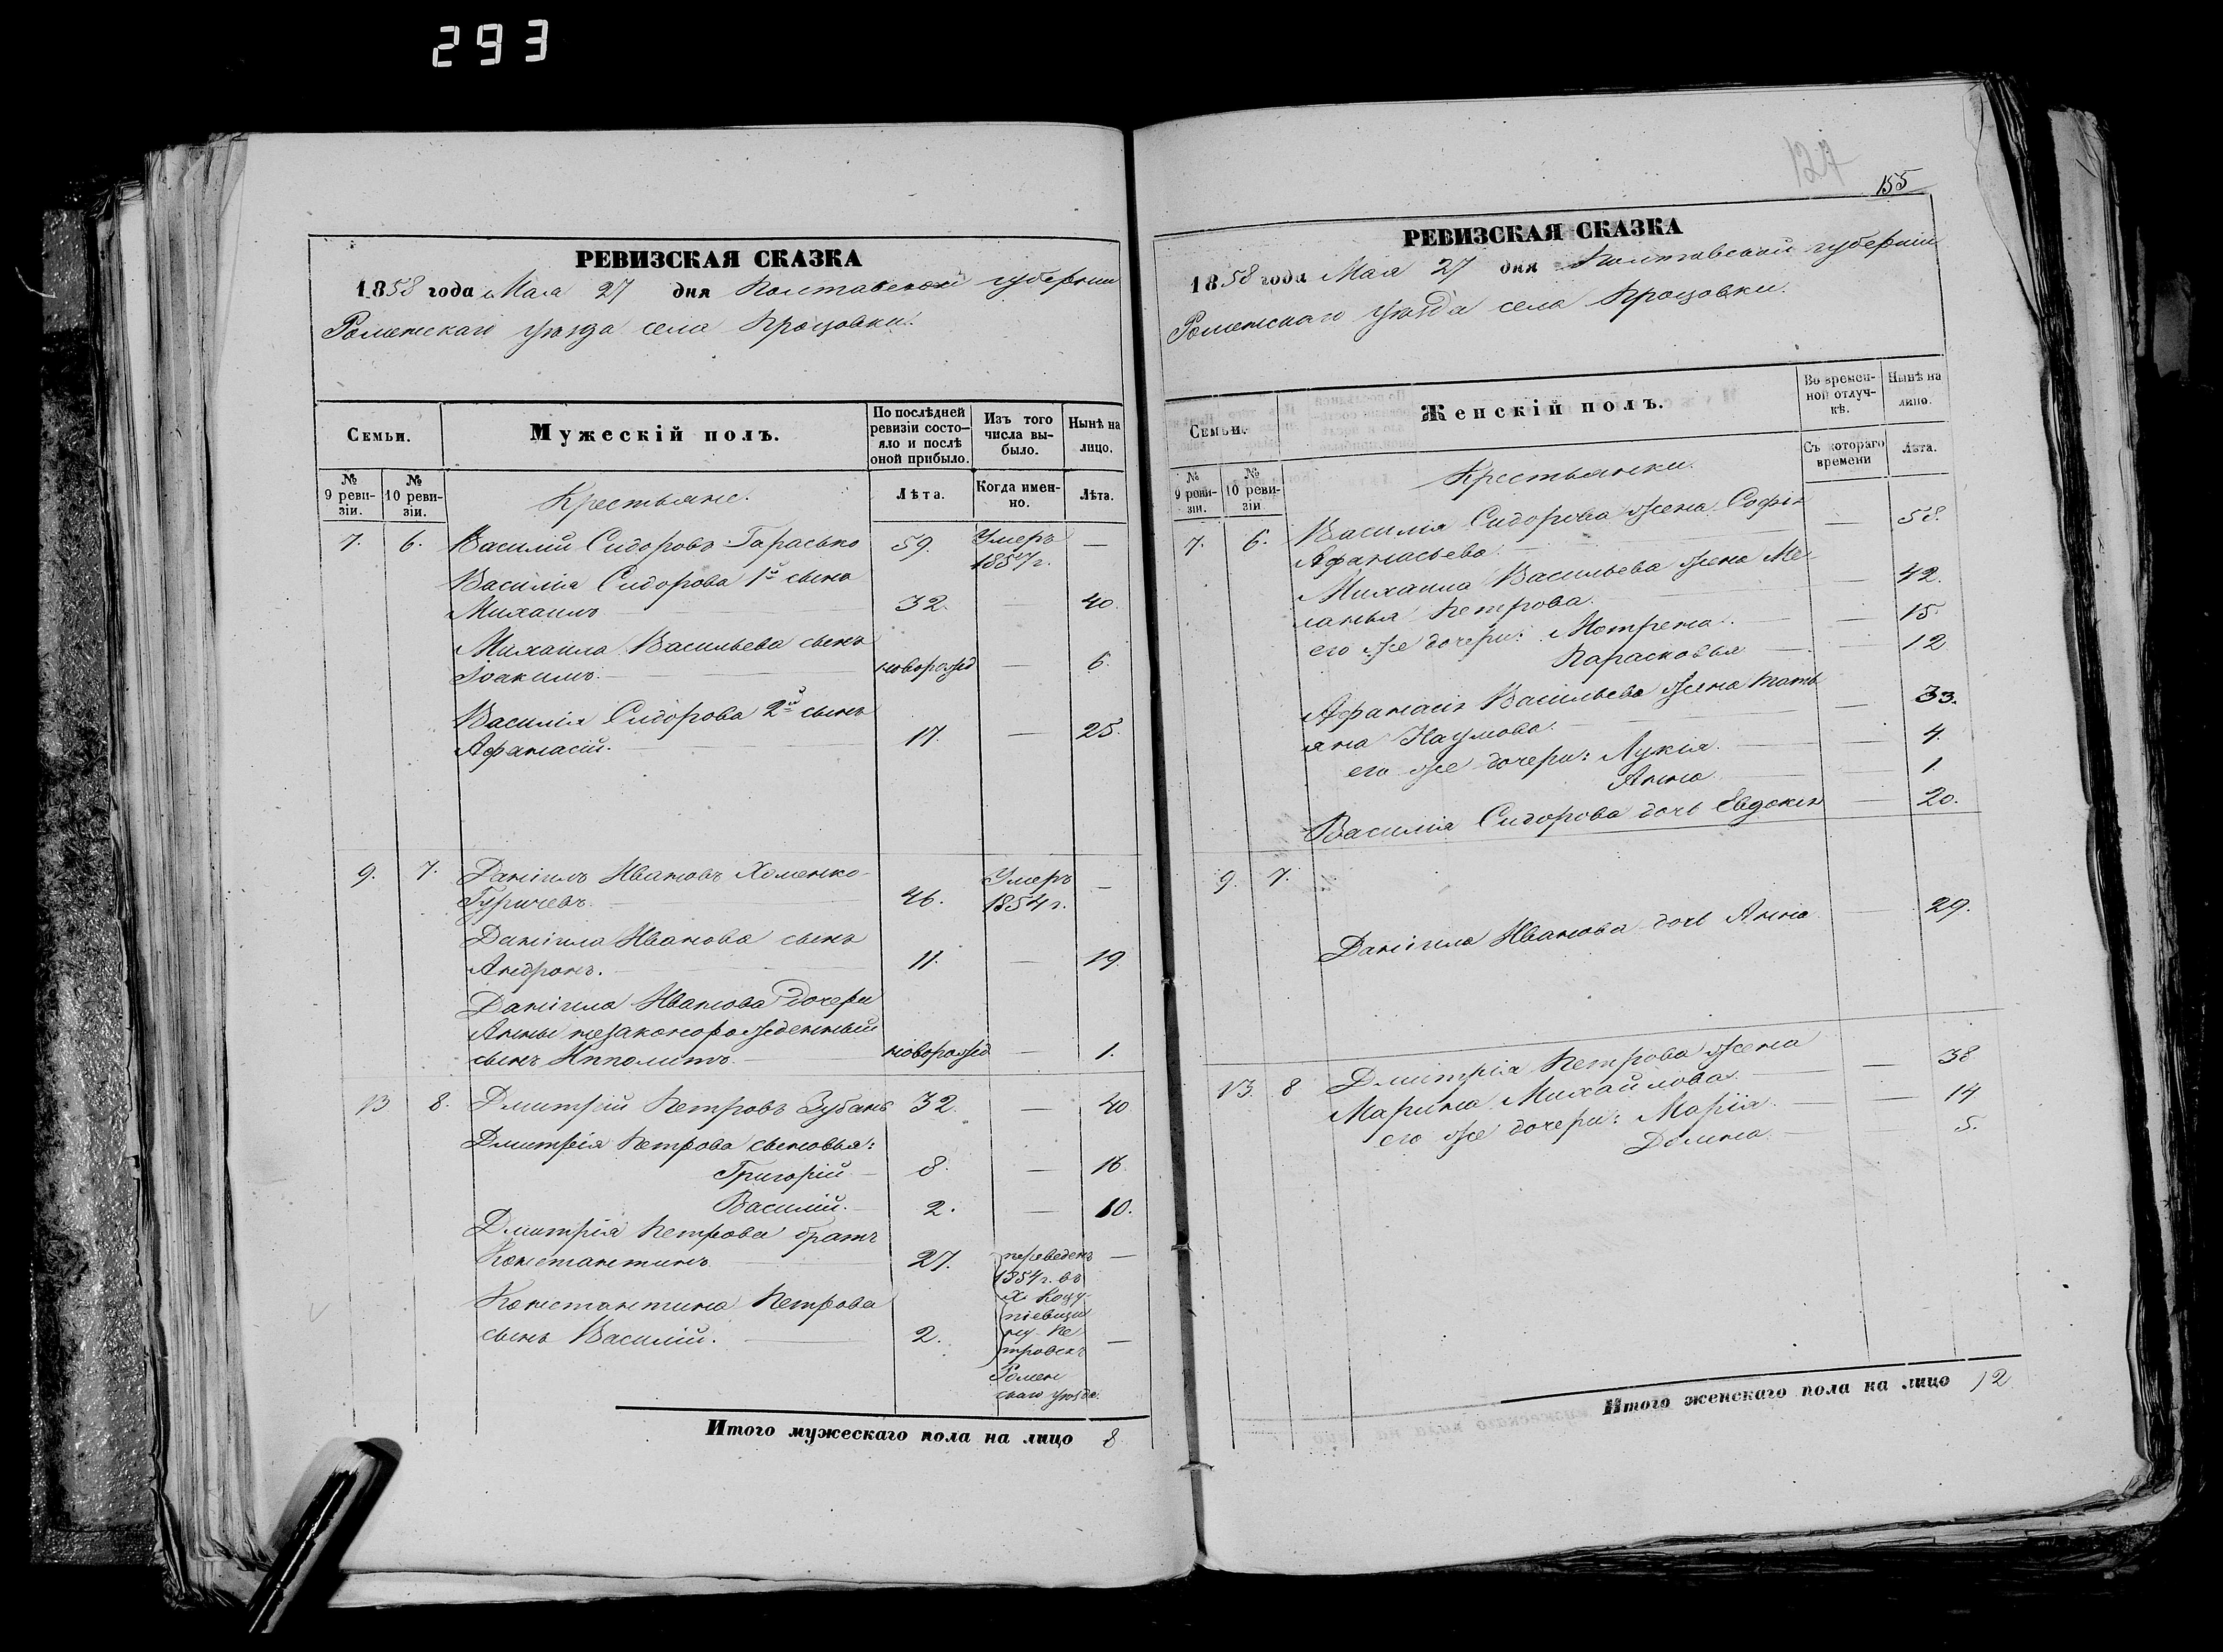 293
РЕВИЗСКАЯ СКАЗКА
1858 года Мая 27 дня Полтавской губернии
Роменскаго уѣзда села Процовки.
Семьи.
Мужескій полъ.
По послѣдней ревизіи состо-
яло и послѣ
оной прибыло.
Изъ того
числа вы-
было.
Нынѣ на
лицо.
№
9 реви-
зіи.
№
10 реви-
зіи.
Крестьяне.
Лѣта.
Когда имен-
но.
Лѣта.
7. 6. Василій Сидоровъ Гарасько 59. Умеръ —
1857 г.
Василія Сидорова 1й сынъ
Михаилъ 32. — 40.
Михаила Васильева сынъ
Іоакимъ. новорожд — 6.
Василія Сидорова 2й сынъ
Афанасій. 17. — 25.
9. 7. Даніилъ Ивановъ Хоменко- Умеръ —
46. 1854 г.
Даніила Иванова сынъ
Андронъ. 11. — 19.
Даніила Иванова дочери
Анны незаконорожденный
сынъ Ипполитъ новорожд — 1.
13 8. Дмитрій Петровъ Зубань 32. — 40
Дмитрія Петрова сыновья:
Григорій 8. — 16.
Василій. 2. — 10.
Дмитрія Петрова братъ
Константинъ 27. переведенъ —
1854 г. въ
Константина Петрова
сынъ Василій. 2. —
Ромен
скаго уѣзда.
Итого мужескаго пола на лицо 8
127
155
РЕВИЗСКАЯ СКАЗКА
1858 года Мая 27 дня Полтавской губерніи
Роменскаго уѣзда села Процовки.
Семьи.
Женскій полъ.
Во времен-
ной отлуч-
кѣ.
Нынѣ на
лицо.
№
9 реви-
зіи.
№
10 реви-
зіи
Крестьянки.
Съ котораго
времени
Лѣта.
7. 6. Василія Сидорова жена Софія
Афанасьева. — 58.
Михаила Васильева жена Ме-
ланья Петрова. — 42.
его же дочери: Мотрена. — 15.
Парасковья — 12
Афанасія Васильева жена Тать
яна Наумова. — 33.
его же дочери: Лукія. — 4.
Анна — 1.
Василія Сидорова дочь Евдокія — 20.
9. 7.
Даніила Иванова дочь Анна — 29.
13. 8 Дмитрія Петрова жена
Марина Михайлова. — 38
его же дочери: Марія. — 14
Домна. — 5.
Итого женскаго пола на лицо 12